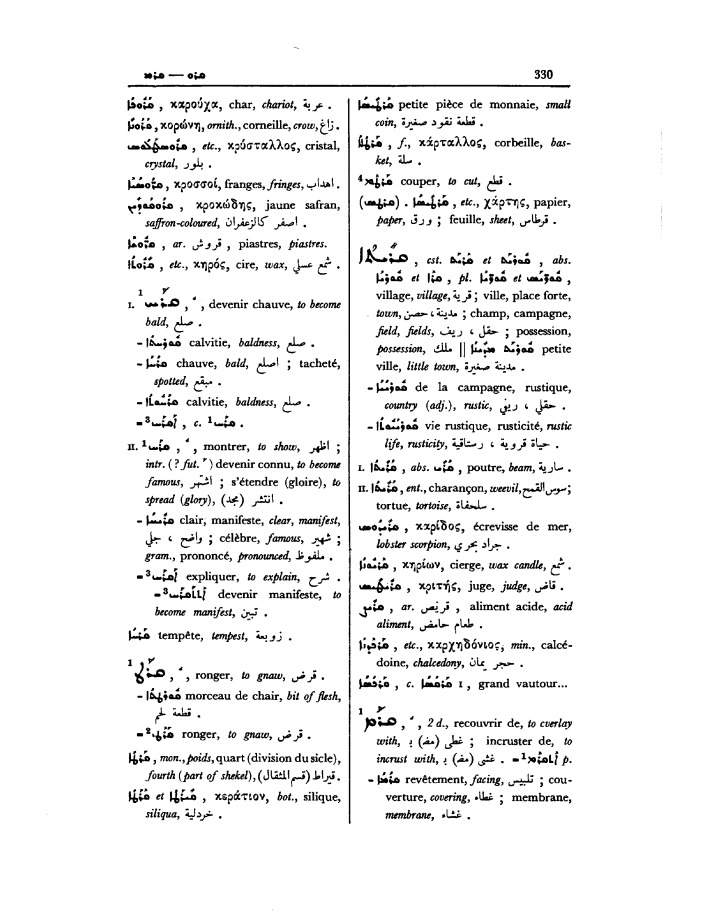 ܩܪܘ — ܩܪܡ 330
ܩܪܘܟܐ , καρούχα, char, chariot, عربة .
ܩܪܘܢܐ , κορώνη, ornith., corneille, crow, زاغ .
, etc., κρύσταλλος, cristal,
crystal, بلور .
ܩܪܘܣܐ , κροσσοί, franges, fringes, اهداب .
, κροκώδης, jaune safran,
saffron-coloured, اصفر كالزعفران .
ܩܪܘܫܐ , ar. قروش , piastres, piastres.
ܩܪܘܬܐ , etc., κηρός, cire, wax, شمع عسلي .
I. ܩܪܚ 1 , devenir chauve, to become
bald, صلع .
– ܩܘܪܚܬܐ calvitie, baldness, صلع .
– ܩܪܚܐ chauve, bald, اصلع ; tacheté,
spotted, مبقع .
– calvitie, baldness, صلع .
= ܐܩܪܚ 3 , c. ܩܪܚ 1 .
II. ܩܪܚ 1 , , montrer, to show, اظهر ;
intr. (? fut. ) devenir connu, to become
famous, اشتهر ; s'étendre (gloire), to
spread (glory), انتشر (مجد) .
– ܩܪܝܚܐ clair, manifeste, clear, manifest,
واضح ، جلي ; célèbre, famous, شهير ;
gram., prononcé, pronounced, ملفوظ .
= ܐܩܪܚ 3 expliquer, to explain, شرح .
= ܐܬܬܩܪܚ 3 devenir manifeste, to
become manifest, تبين .
ܩܪܚܐ tempête, tempest, زوبعة .
ܩܪܛ 1 , , ronger, to gnaw, قرض .
– ܩܘܪܛܬܐ morceau de chair, bit of flesh,
قطعة لحم .
= ܩܪܛ 2 ronger, to gnaw, قرض .
ܩܪܛܐ , mon., poids, quart (division du sicle),
fourth (part of shekel), قيراط (قسم المثقال) .
ܩܪܛܐ et ܩܪܛܐ , κεράτιον, bot., silique,
siliqua, خردلية .
petite pièce de monnaie, small
coin, قطعة نقود صغيرة .
ܩܪܛܠܐ , f., κάρταλλος, corbeille, bas-
ket, سلة .
ܩܪܛܡ 4 couper, to cut, قطع .
(ܩܪܛܣ) . ܩܪܛܝܣܐ , etc., χάρτης, papier,
paper, ورق ; feuille, sheet, قرطاس .
ܩܪܝܬܐ , cst. ܩܪܝܬ et ܩܘܪܝܬ , abs.
et ܩܪܐ , pl. et ,
village, village, قرية ; ville, place forte,
town, مدينة ، حصن ; champ, campagne,
field, fields, حقل ، ريف ; possession,
possession, ملك || petite
ville, little town, مدينة صغيرة .
– ܩܘܪܝܐ de la campagne, rustique,
country (adj.), rustic, حقلي ، ريفي .
– vie rustique, rusticité, rustic
life, rusticity, حياة قروية ، رستاقية .
I. ܩܪܝܬܐ , abs. , poutre, beam, سارية .
II. ܩܪܝܬܐ , ent., charançon, weevil, سوس القمح ;
tortue, tortoise, سلحفاة .
, καρίδος, écrevisse de mer,
lobster scorpion, جراد بحري .
, κηρίων, cierge, wax candle, شمع .
, κριτής, juge, judge, قاض .
ܩܪܝܨ , ar. قريص , aliment acide, acid
aliment, طعام حامض .
, etc., καρχηδόνιος, min., calcé-
doine, chalcedony, حجر يمان .
, c. I , grand vautour...
ܩܪܡ 1 , , 2 d., recouvrir de, to cverlay
with, غطى (مف) بـ ; incruster de, to
incrust with, غشى (مف) بـ . = ܐܬܩܪܡ 1 p.
– ܩܪܡܐ revêtement, facing, تلبيس ; cou-
verture, covering, غطاء ; membrane,
membrane, غشاء .